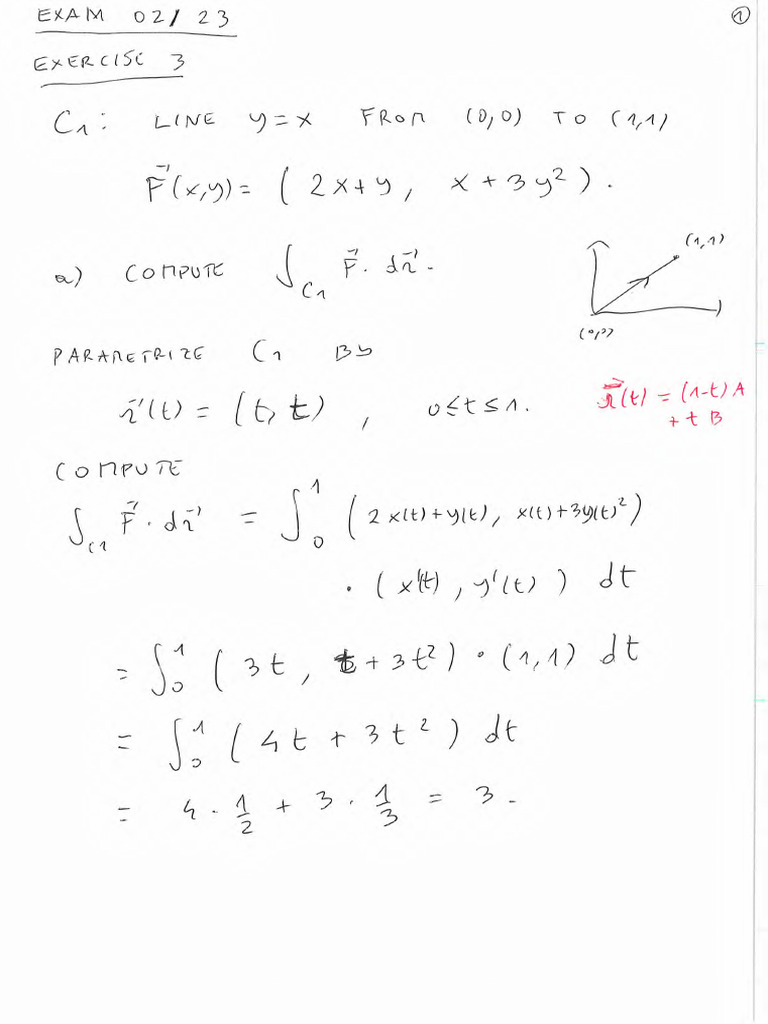 EXAM 02/23
1
EXERCISE 3
C₁: LINE y=x FROM (0,0) TO (1,1)
F⃗(x,y) = (2x+y, x+3y²).
a) COMPUTE ∫_C₁ F⃗ · dr⃗.
(1,1)
(0,0)
PARAMETRIZE C₁ BY
r⃗(t) = (t, t), 0≤t≤1.
r⃗(t) = (1-t) A
+ t B
COMPUTE
∫_C₁ F⃗ · dr⃗ = ∫₀¹ (2x(t)+y(t), x(t)+3y(t)²)
· (x'(t), y'(t)) dt
= ∫₀¹ (3t, t+3t²) · (1,1) dt
= ∫₀¹ (4t + 3t²) dt
= 4 · 1/2 + 3 · 1/3 = 3.